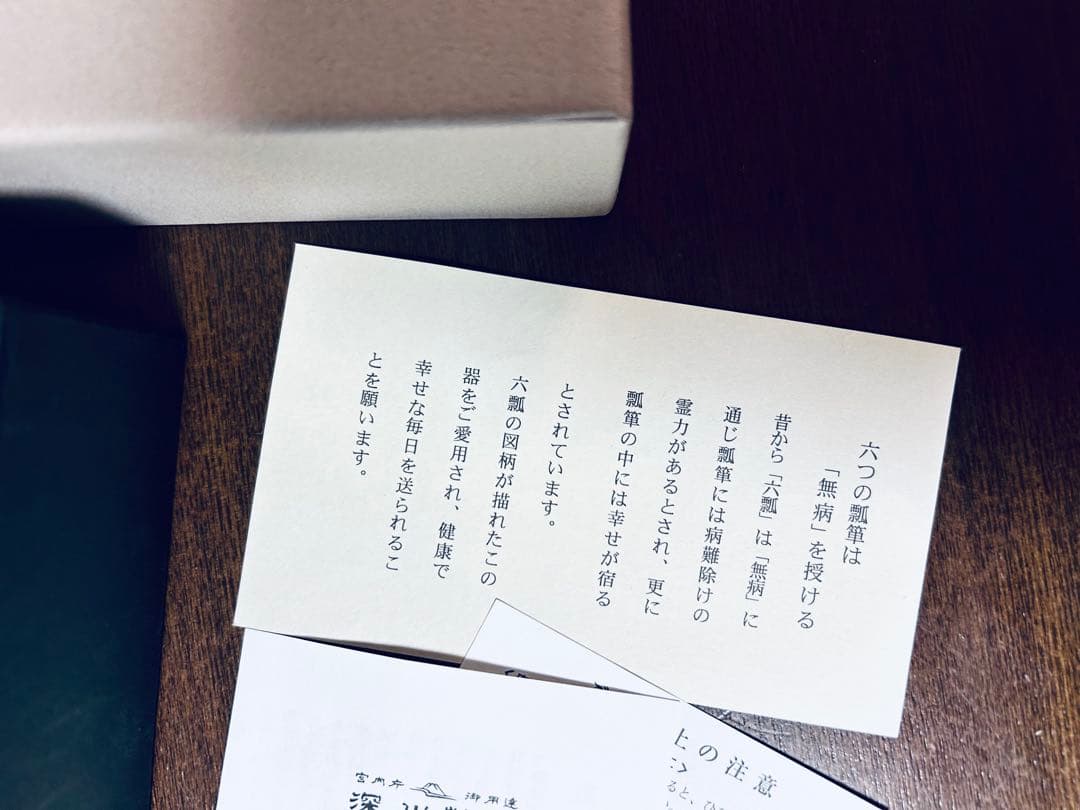 六つの瓢箪は
「無病」を授ける
昔から「六瓢」は「無病」に
通じ瓢箪には病難除けの
霊力があるとされ、更に
瓢箪の中には幸せが宿る
とされています。
六瓢の図柄が描れたこの
器をご愛用され、健康で
幸せな毎日を送られるこ
とを願います。
上の注意
ると、ひ
宮内庁 御用達
深川